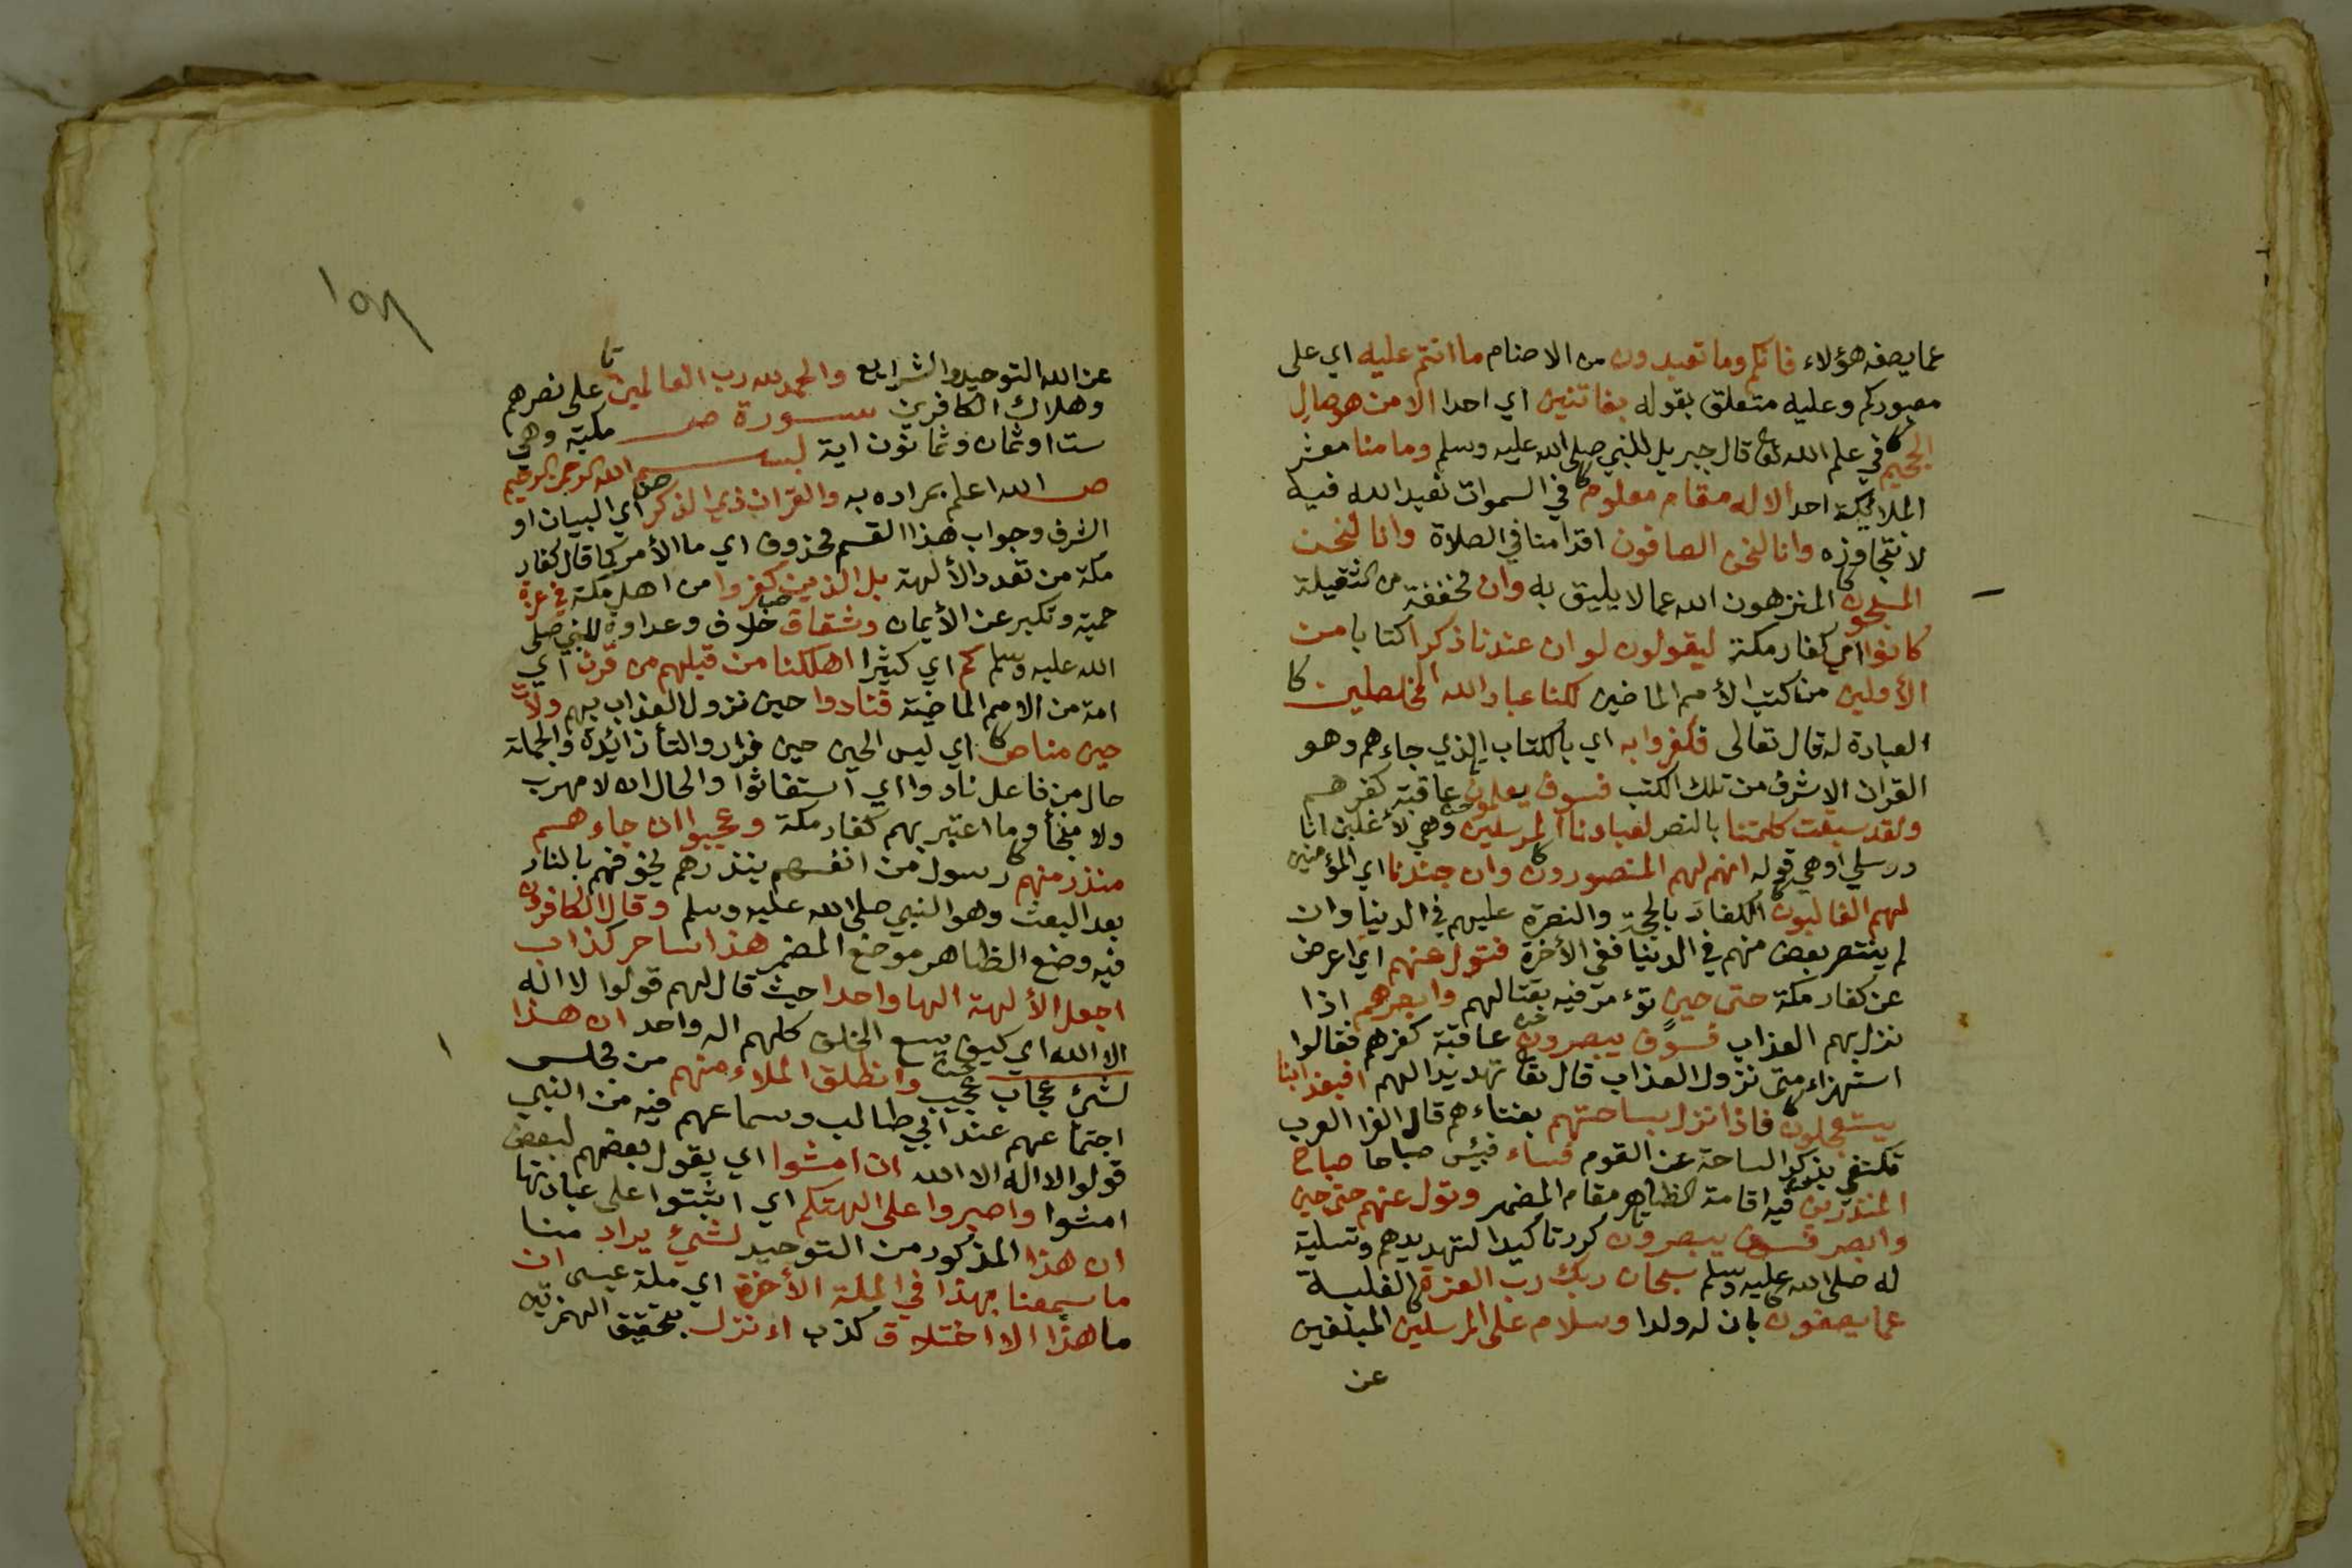 عما يصفه هؤلاء فانكم وما تعبدون من الاصنام ما انتم عليه اي على
معبودكم وعليه متعلق بقوله بفاتنين اي احدا الا من هو صال
الجحيم في علم الله تعا قال جبريل للنبي صلى الله عليه وسلم وما منا معشر
الملائكة احد الا له مقام معلوم في السموات نعبد الله فيه
لا نتجاوزه وانا لنحن الصافون اقدامنا في الصلاة وانا لنحن
المسبحون المنزهون الله عما لا يليق به وان مخففة من الثقيلة
كانوا اي كفار مكة ليقولون لو ان عندنا ذكرا كتابا من
الأولين من كتب الأمم الماضين لكنا عباد الله المخلصين
العبادة له قال تعالى فكفروا به اي بالكتاب الذي جاءهم وهو
القران الاشرف من تلك الكتب فسوف يعلمون عاقبة كفرهم
ولقد سبقت كلمتنا بالنصر لعبادنا المرسلين وهي لأغلبن انا
ورسلي او هي قوله انهم لهم المنصورون وان جندنا اي المؤمنين
لهم الغالبون الكفار بالحجة والنصرة عليهم في الدنيا وان
لم ينتصر بعض منهم في الدنيا ففي الأخرة فتول عنهم اي اعرض
عن كفار مكة حتى حين تؤمر فيه بقتالهم وابصرهم اذا
نزل بهم العذاب فسوف يبصرون عاقبة كفرهم فقالوا
استهزاء متى نزول العذاب قال تعا تهديدا لهم افبعذابنا
يستعجلون فاذا نزل بساحتهم بفناءهم قال الفرا العرب
تكتفي بذكر الساحة عن القوم فساء فبئس صباحا صباح
المنذرين فيه اقامة الظاهر مقام المضمر وتول عنهم حتى حين
وابصر فسوف يبصرون كرر تأكيدا لتهديدهم وتسلية
له صلى الله عليه وسلم سبحان ربك رب العزة الغلبة
عما يصفون بان له ولدا وسلام على المرسلين المبلغين
عن
عن الله التوحيد والشرايع والحمد لله رب العالمين على نصرهم
وهلاك الكافرين سورة ص مكية وهي
ست او ثمان وثمانون اية بسم الله الرحمن الرحيم
ص الله اعلم بمراده به والقران ذي الذكر اي البيان او
الشرف وجواب هذا القسم محذوف اي ما الأمر كما قال كفار
مكة من تعدد الألهة بل الذين كفروا من اهل مكة في عزة
حمية وتكبر عن الأيمان وشقاق خلاف وعداوة للنبي صلى
الله عليه وسلم كم اي كثيرا اهلكنا من قبلهم من قرن اي
امة من الامم الماضية فنادوا حين نزول العذاب بهم ولات
حين مناص اي ليس الحين حين فرار والتأ زائدة والجملة
حال من فاعل نادوا اي استغاثوا والحال ان لا مهرب
ولا منجأ وما اعتبر بهم كفار مكة وعجبوا ان جاءهم
منذر منهم رسول من انفسهم ينذرهم يخوفهم بالنار
بعد البعث وهو النبي صلى الله عليه وسلم وقال الكافرون
فيه وضع الظاهر موضع المضمر هذا ساحر كذاب
اجعل الألهة الها واحدا حيث قال لهم قولوا لا اله
الا الله اي كيف يسع الخلق كلهم اله واحد ان هذا
لشئ عجاب عجيب وانطلق الملاء منهم من مجلس
اجتماعهم عند ابي طالب وسماعهم فيه من النبي
قولوا لا اله الا الله ان امشوا اي يقول بعضهم لبعض
امشوا واصبروا على الهتكم اي اثبتوا على عبادتها
ان هذا المذكور من التوحيد لشئ يراد منا
ما سمعنا بهذا في الملة الأخرة اي ملة عيسى ان
ما هذا الا اختلاق كذب اءنزل بتحقيق الهمزتين